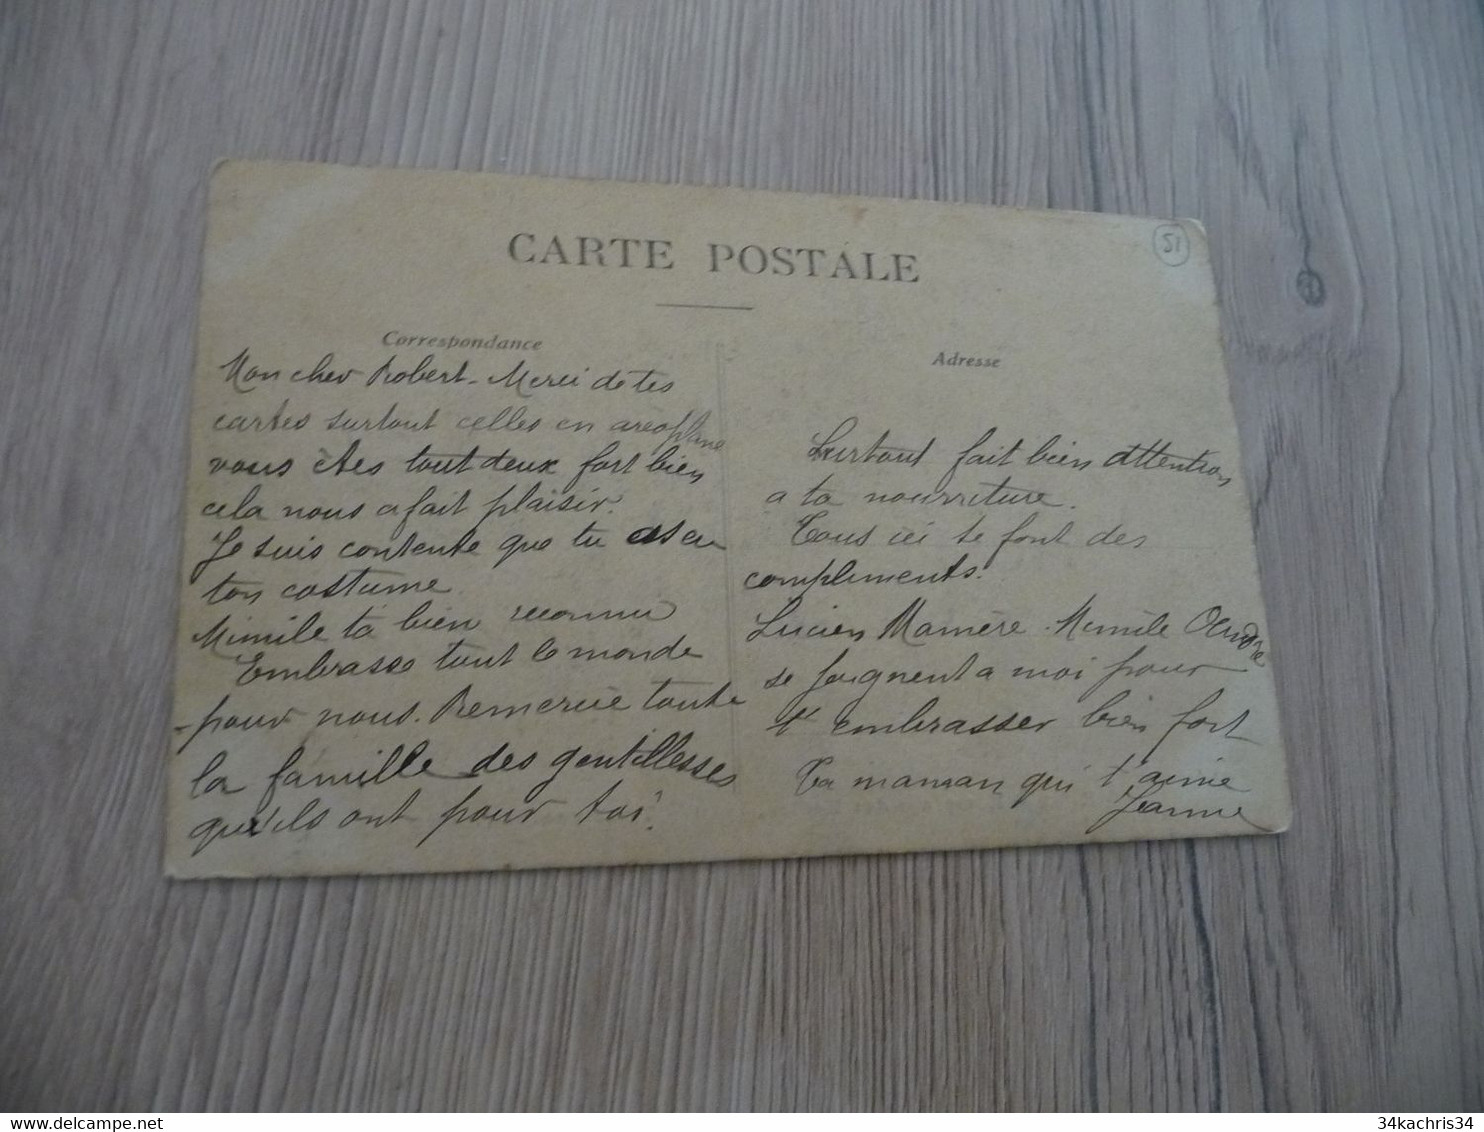 CARTE POSTALE
51
Correspondance
Mon cher Robert - Merci de tes
cartes surtout celles en aréoplane
vous êtes tout deux fort bien
cela nous a fait plaisir.
Je suis contente que tu as eu
ton costume
Mimile ta bien reconnu
Embrasse tout le monde
pour nous. Remercie toute
la famille des gentillesses
qu'ils ont pour toi.
Adresse
Surtout fait bien attention
a ta nourriture.
Tous ici te font des
compliments.
Lucien Mamère - Mimile
se joignent a moi pour
t'embrasser bien fort
Ta maman qui t'aime
Jeanne
34kachris34